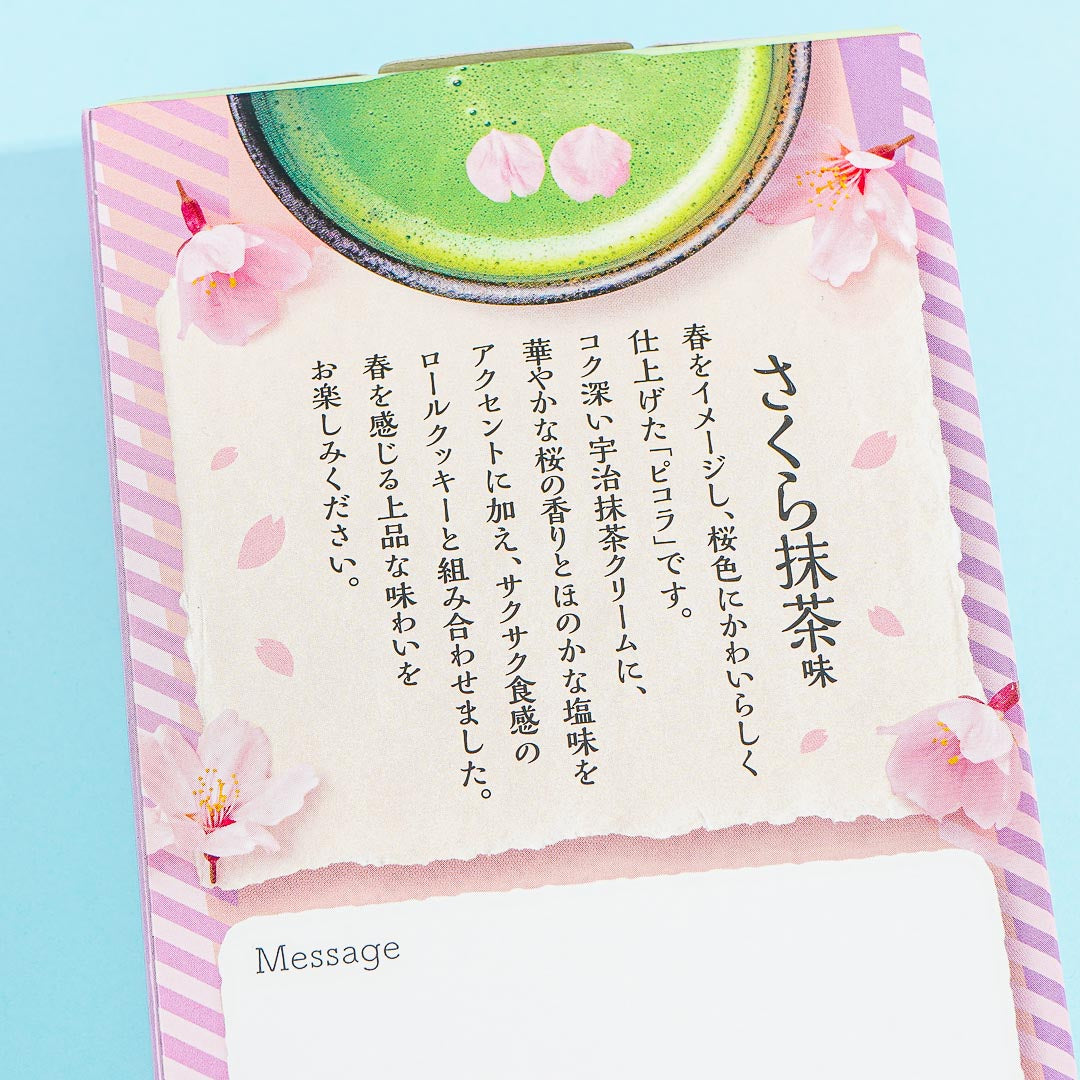 さくら抹茶味
春をイメージし、桜色にかわいらしく
仕上げた「ピコラ」です。
コク深い宇治抹茶クリームに、
華やかな桜の香りとほのかな塩味を
アクセントに加え、サクサク食感の
ロールクッキーと組み合わせました。
春を感じる上品な味わいを
お楽しみください。
Message